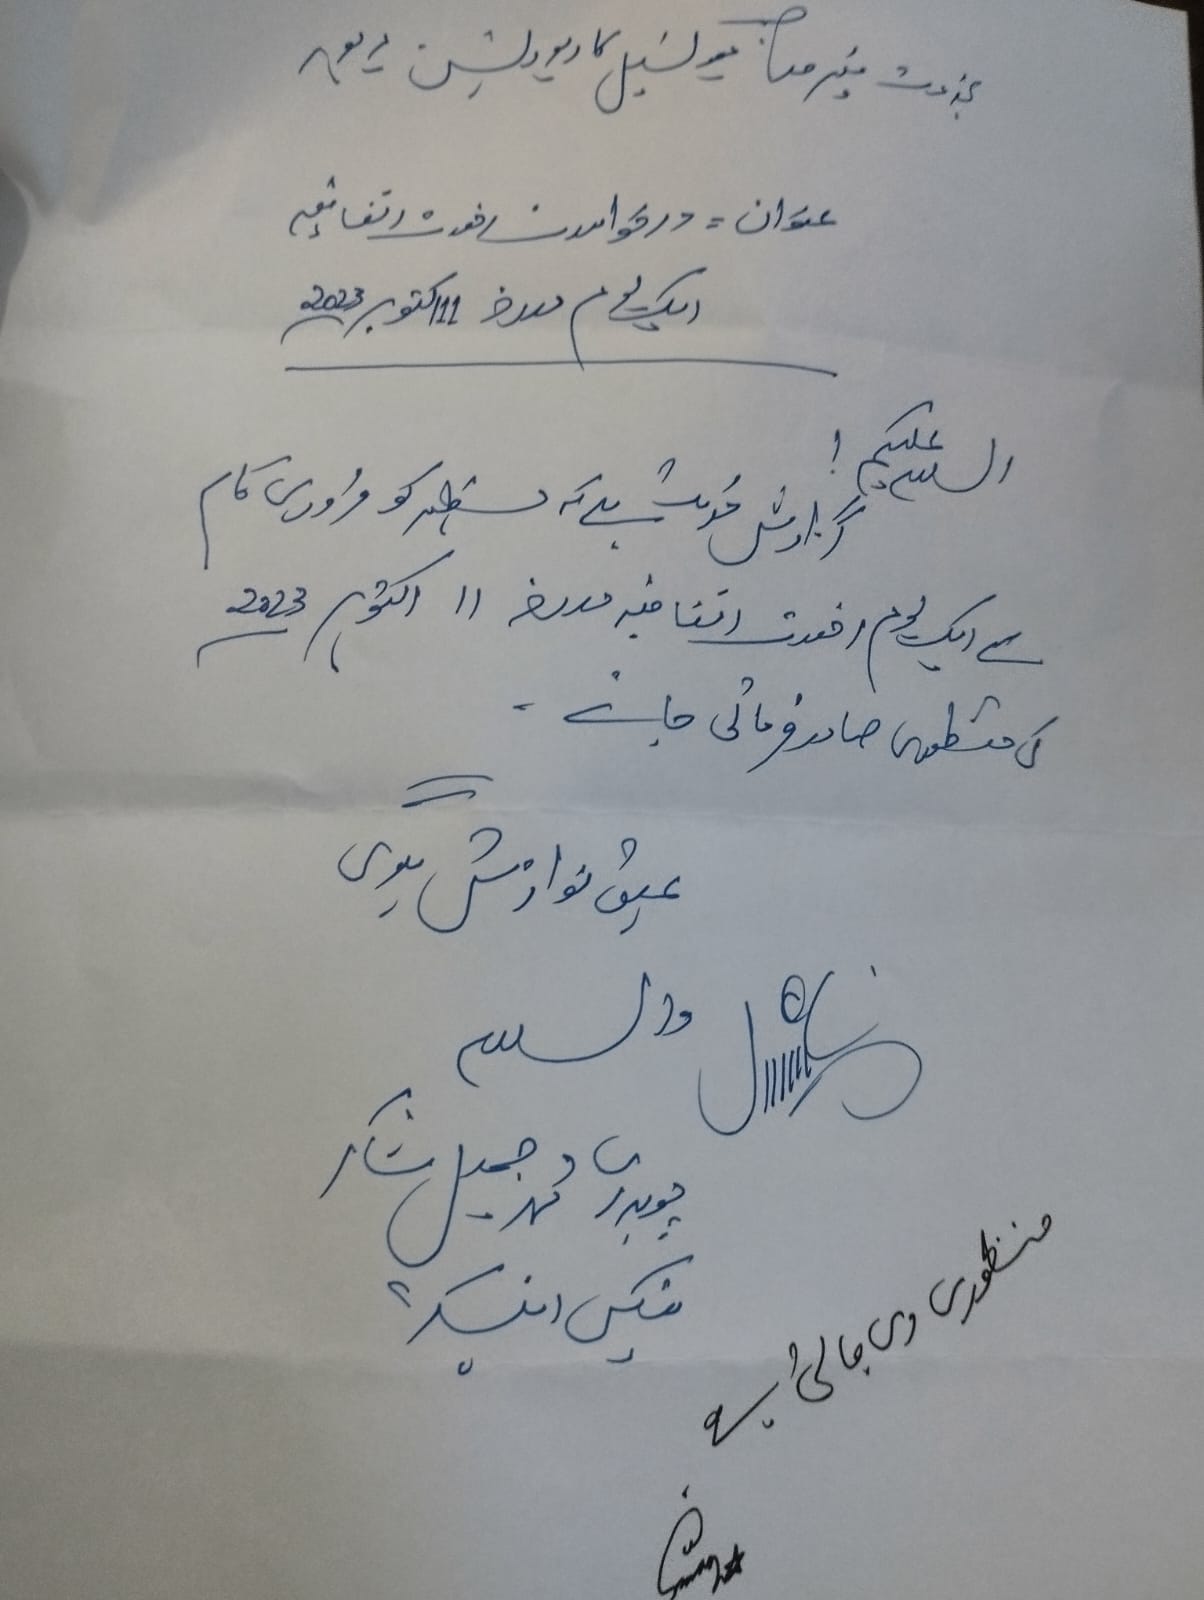 بخدمت میئر صاحب میونسپل کارپوریشن میرپور
عنوان = درخواست رخصت اتفاقیہ
ایک یوم مورخہ 11 اکتوبر 2023
السلام علیکم!
گزارش خدمت ہے کہ مظہر کو ضروری کام
سے ایک یوم رخصت اتفاقیہ مورخہ 11 اکتوبر 2023
کی منظوری صادر فرمائی جائے۔
عین نوازش ہوگی
والسلام
چوہدری محمد جمیل شاکر
ٹیکس انسپکٹر
منظوری دی جاتی ہے